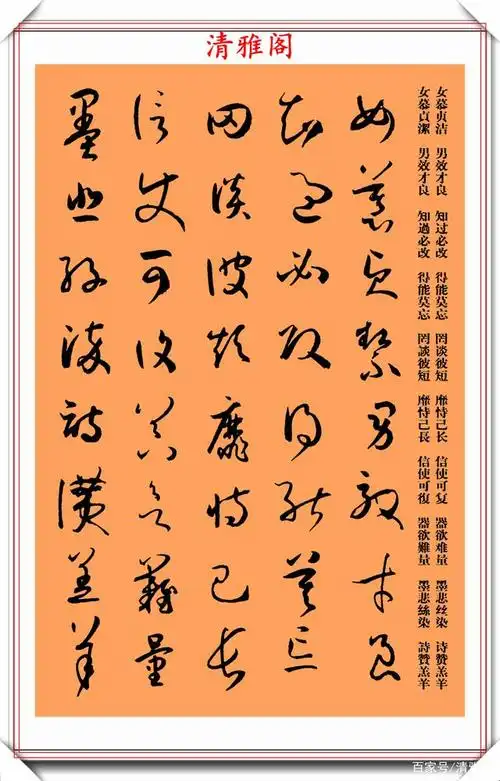 清雅阁
女慕贞洁 男效才良 知过必改 得能莫忘 罔谈彼短 靡恃己长 信使可复 器欲难量 墨悲丝染 诗赞羔羊
女慕貞潔 男效才良 知過必改 得能莫忘 罔談彼短 靡恃己長 信使可復 器欲難量 墨悲絲染 詩贊羔羊
女慕貞絜男效才良
知過必改得能莫忘
罔談彼短靡恃己長
信使可復器欲難量
墨悲絲染詩讃羔羊
百家号/清雅